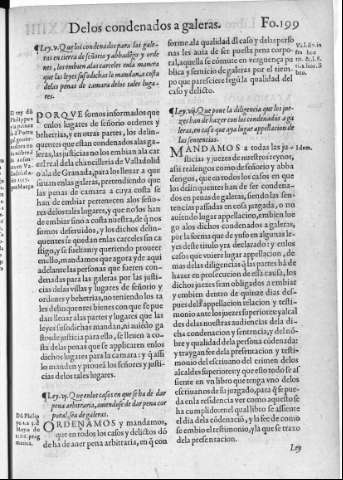 Delos condenados a galeras. Fo.199
¶Ley.v. Que los condenados para las gale-
ras en tierra de señorio y abbadēgo y orde
nes, los embien alas carceles enla manera
que las leyes suso dichas lo mandan a costa
delas penas de camara delos tales luga-
res.
PORQVE somos informados que
enlos lugares de señorio ordenes y
behetrias, y en otras partes, los delin-
quentes que estan condenados alas ga-
leras, las justicias no los embian ala car
cel real dela chancilleria de Valladolid
o ala de Granada, para los lleuar a que
siruan enlas galeras, pretendiendo que
las penas de camara a cuya costa se
han de embiar pertenecen alos seño-
res delos tales lugares, y que no los han
de embiar sino a costa nuestra, de q̄ nos
somos deseruidos, y los dichos delin-
quentes se quedan enlas carceles sin ca
stigo, y se sueltan: y queriendo proueer
enello, mandamos que agora y de aqui
adelante las personas que fueren con-
denadas para las galeras por las justi-
cias delas villas y lugares de señorio y
ordenes y behetrias, no teniendo los ta
les delinquentes bienes con que se pue
dan lleuar alas partes y lugares que las
leyes suso dichas mandan, ni auiēdo ga
sto de justicia para ello, se lleuen a co-
sta delas penas que se applicaren enlos
dichos lugares para la camara: y q̄ assi
lo manden y prouean los señores y justi-
cias delos tales lugares.
¶Ley.vj. Que enlos casos en que se ha de dar
pena arbitraria, auiendose de dar pena cor
poral, sea de galeras.
ORDENAMOS y mandamos,
que en todos los casos y delictos dō
de ha de auer pena arbitraria, en q̄ con
forme ala qualidad dl caso y dela perso
nas les auia de ser puesta pena corpo-
ral, aquella se cōmute en verguença pu
blica y seruicio de galeras por el tiem-
po que paresciere segū la qualidad del
caso y delicto.
¶Ley.vij. Que pone la diligencia que los jue-
zes han de hazer con los condenados a ga
leras, en caso que aya lugar appellacion de
las sentencias.
MANDAMOS a todas las ju
sticias y juezes de nuestros reynos,
assi realengos como de señorio y abba
dengos, que en todos los casos en que
los delinquentes han de ser condena-
dos en penas de galeras, siendo las sen-
tencias passadas en cosa juzgada, o no
auiendo lugar appellacion, embien luego
alos dichos condenados a galeras,
por la forma que de yuso en algunas le-
yes deste titulo esta declarado: y enlos
casos que uuiere lugar appellacion, de
mas delas diligencias q̄ las partes hā de
hazer en prosecucion de esta causa, los
dichos juezes sean obligados a embiar
y embien dentro de quinze dias des-
pues dela appelacion relacion y testi-
monio ante los juezes superiores y alcal
des delas nuestras audiencias dela di-
cha condenacion y sentencia, y del nō-
bre y qualidad dela persona cōdenada:
y traygan fee dela presentacion y testi-
monio del escriuano del crimen delos
alcaldes superiores: y que esto todo se as
siente en vn libro que tenga vno delos
escriuanos de su juzgado, para q̄ se pue
da enla residencia ver como aquesto se
ha cumplido: enel qual libro se assiente
el dia dela cōdenaciō, y la fee de como
se embio el testimonio, y la que se traxo
dela presentacion.
Ley
Idem.